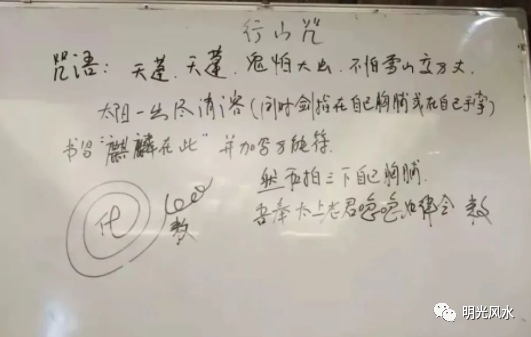 行山咒
咒语：天蓬，天蓬，鬼怕大出，不怕雪山高万丈
太阳一出尽消溶（同时剑指在自己胸脯或在自己手掌）
书写“麒麟在此”并加写万能符.
然后拍三下自己胸脯.
化
敕
吾奉太上老君急急如律令 敕
明光风水